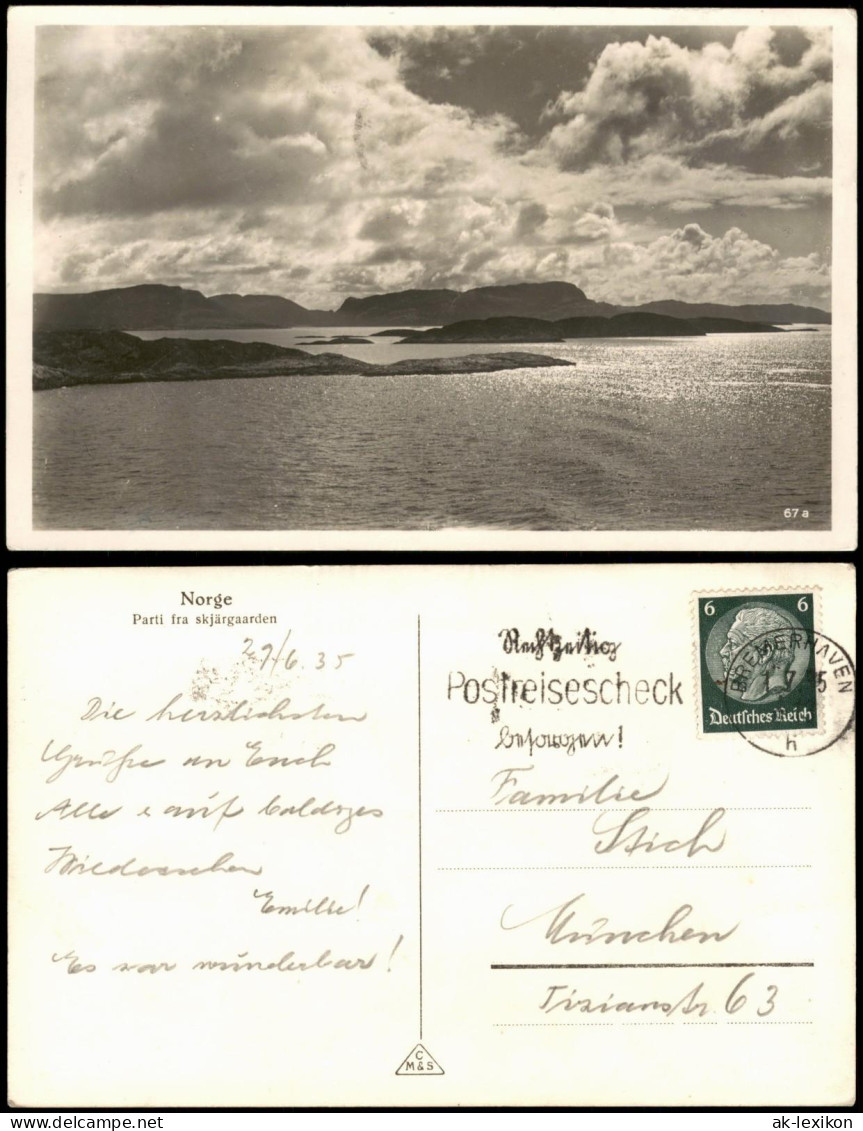 67 a
Norge
Parti fra skjärgaarden
29/6.35
Die herzlichsten
Grüße an Euch
Alle & auf baldiges
Wiedersehen
Emilie!
Es war wunderbar!
Rechtzeitig
Postreisescheck
besorgen!
6 6
Deutsches Reich
BREMERHAVEN
1.7.35
h
Familie
Stich
München
Tizianstr. 63
C
M&S
ak-lexikon